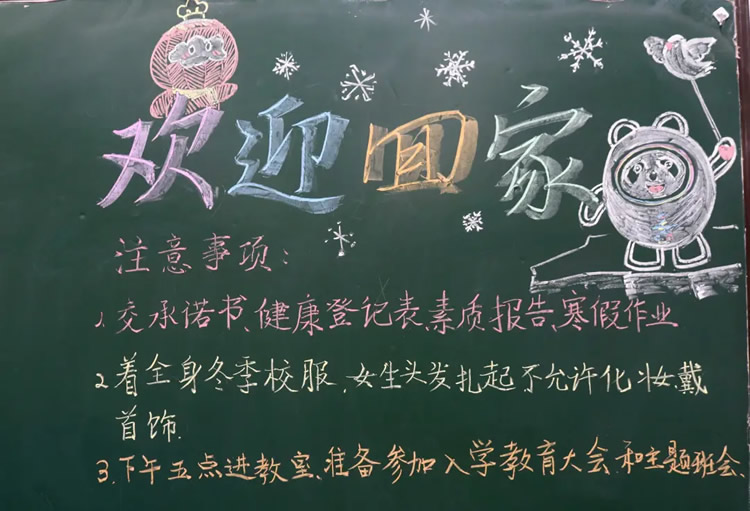 欢迎回家
注意事项：
1.交承诺书、健康登记表、素质报告、寒假作业
2.着全身冬季校服、女生头发扎起不允许化妆、戴
首饰.
3.下午五点进教室、准备参加入学教育大会和主题班会、